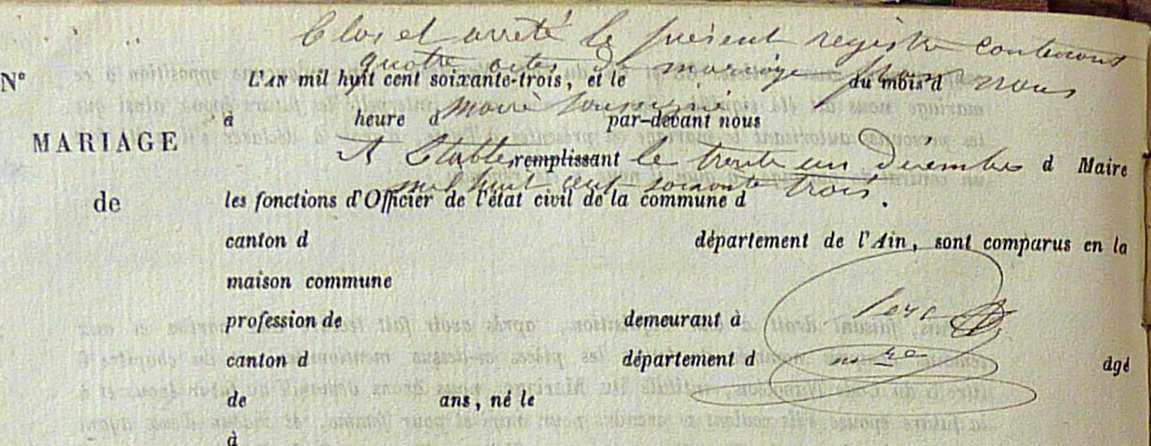 Clos et arrêté le présent registre contenant
quatre actes de mariage par nous
N° L'AN mil huit cent soixante-trois, et le du mois d
maire soussigné
à heure d par-devant nous
MARIAGE
A Etables le trente un Décembre
remplissant d Maire
mil huit cent soixante trois.
de les fonctions d'Officier de l'état civil de la commune d
canton d département de l'Ain, sont comparus en la
maison commune
profession de demeurant à
canton d département d âgé
de ans, né le
à